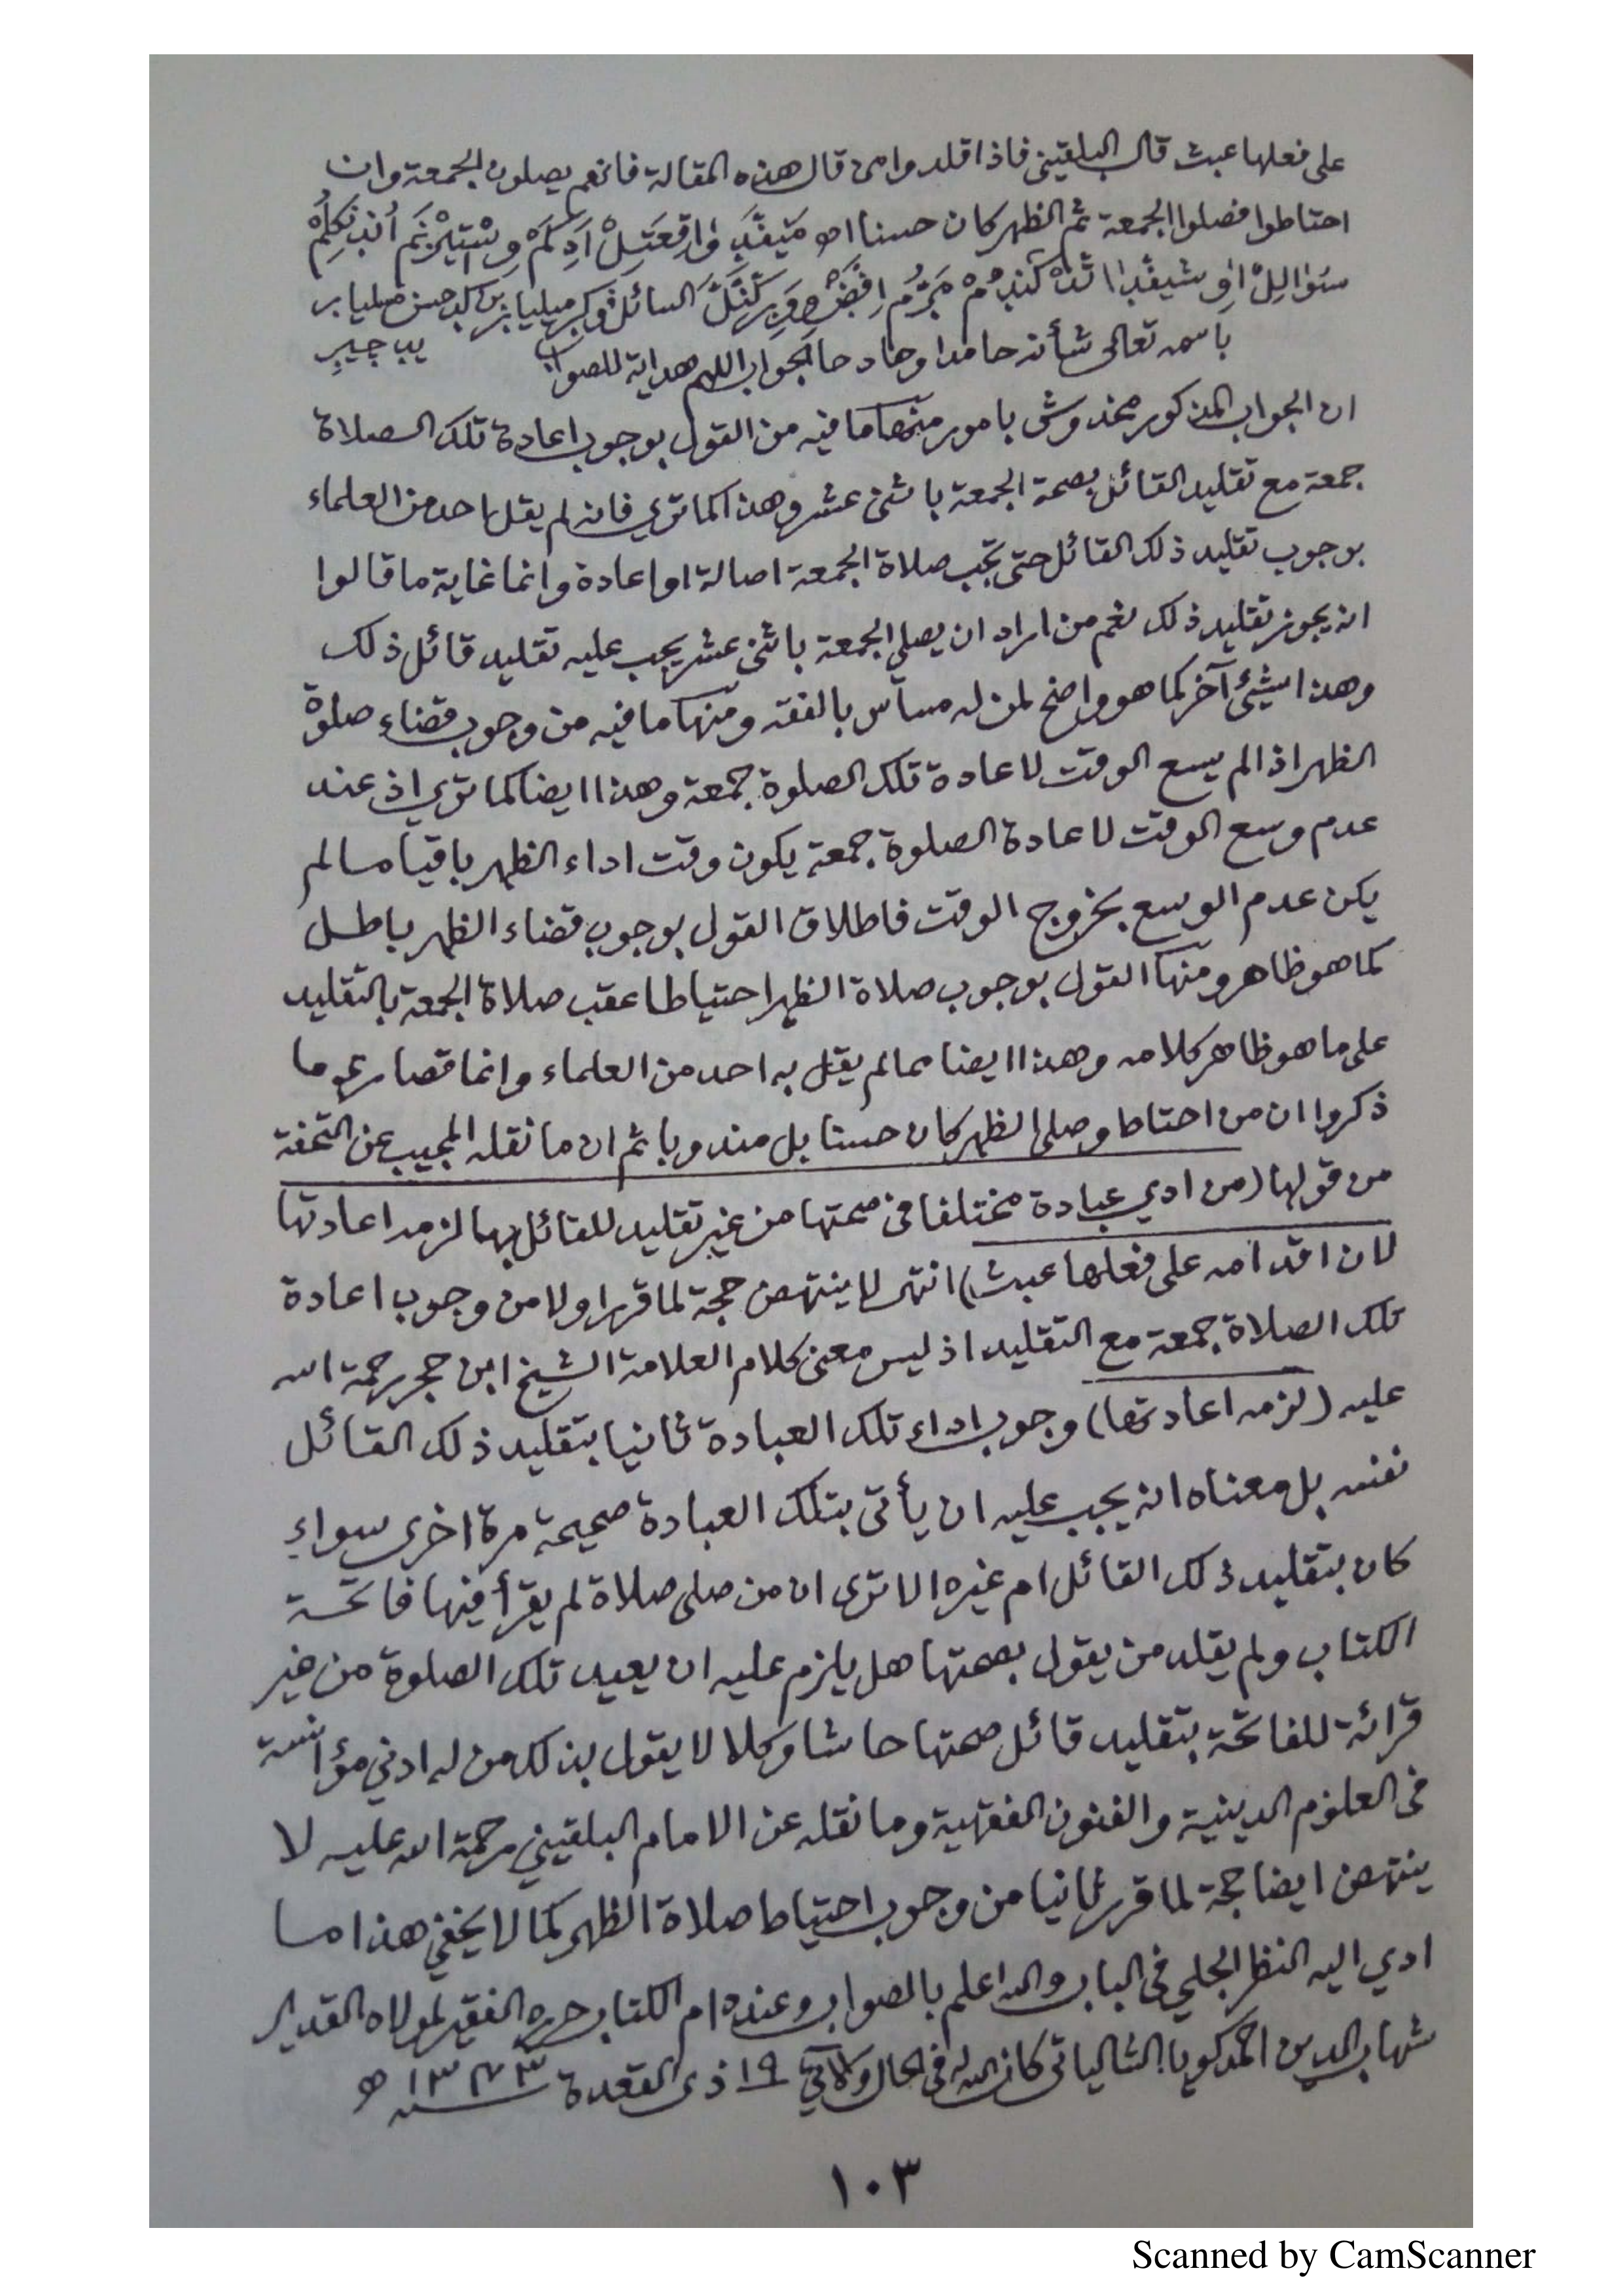 على فعلها عبث قال البلقيني فاذا قلدوا من قال هذه المقالة فانهم يصلون الجمعة وان
احتاطوا فصلوا الجمعة ثم الظهر كان حسنا اھ
السائل
باسمه تعالى شأنه حامدا وحادحا الجواب اللهم هداية للصواب
ان الجواب المذكور مخدوش بامور منها ما فيه من القول بوجوب اعادة تلك الصلاة
جمعة مع تقليد القائل بصحة الجمعة باثنى عشر وهذا كما ترى فانه لم يقل احد من العلماء
بوجوب تقليد ذلك القائل حتى تجب صلاة الجمعة اصالة او اعادة وانما غاية ما قالوا
انه يجوز تقليد ذلك نعم من اراد ان يصلي الجمعة باثنى عشر يجب عليه تقليد قائل ذلك
وهذا شيئ آخر كما هو واضح لمن له مساس بالفقه ومنها ما فيه من وجوب قضاء صلوة
الظهر اذا لم يسع الوقت لاعادة تلك الصلوة جمعة وهذا ايضا كما ترى اذ عند
عدم وسع الوقت لاعادة الصلوة جمعة يكون وقت اداء الظهر باقيا ما لم
يكن عدم الوسع بخروج الوقت فاطلاق القول بوجوب قضاء الظهر باطل
كما هو ظاهر ومنها القول بوجوب صلاة الظهر احتياطا عقب صلاة الجمعة بالتقليد
على ما هو ظاهر كلامه وهذا ايضا مما لم يقل به احد من العلماء وانما قصارى ما
ذكروا ان من احتاط وصلى الظهر كان حسنا بل مندوبا ثم ان ما نقله المجيب عن التحفة
من قولها (من ادي عبادة مختلفا فى صحتها من غير تقليد للقائل بها لزمه اعادتها
لان اقدامه على فعلها عبث) انتهى لا ينتهض حجة لما قرر اولا من وجوب اعادة
تلك الصلاة جمعة مع التقليد اذ ليس معنى كلام العلامة الشيخ ابن حجر رحمة الله
عليه (لزمه اعادتها) وجوب اداء تلك العبادة ثانيا بتقليد ذلك القائل
نفسه بل معناه انه يجب عليه ان يأتى بتلك العبادة صحيحة مرة اخرى سواء
كان بتقليد ذلك القائل ام غيره الا ترى ان من صلى صلاة لم يقرأ فيها فاتحة
الكتاب ولم يقلد من يقول بصحتها هل يلزم عليه ان يعيد تلك الصلوة من غير
قرائة للفاتحة بتقليد قائل صحتها حاشا وكلا لا يقول بذلك من له ادنى مؤانسة
فى العلوم الدينية والفنون الفقهية وما نقله عن الامام البلقيني رحمة الله عليه لا
ينتهض ايضا حجة لما قرر ثانيا من وجوب احتياط صلاة الظهر كما لا يخفى هذا ما
ادي اليه النظر الجلي فى الباب والله اعلم بالصواب وعنده ام الكتاب حرره الفقير لمولاه القدير
شهاب الدين احمد كويا الشالياتى كان الله له فى الحال والآتي ١٩ ذى القعدة ١٣٧٣ سنه هو
١٠٣
Scanned by CamScanner